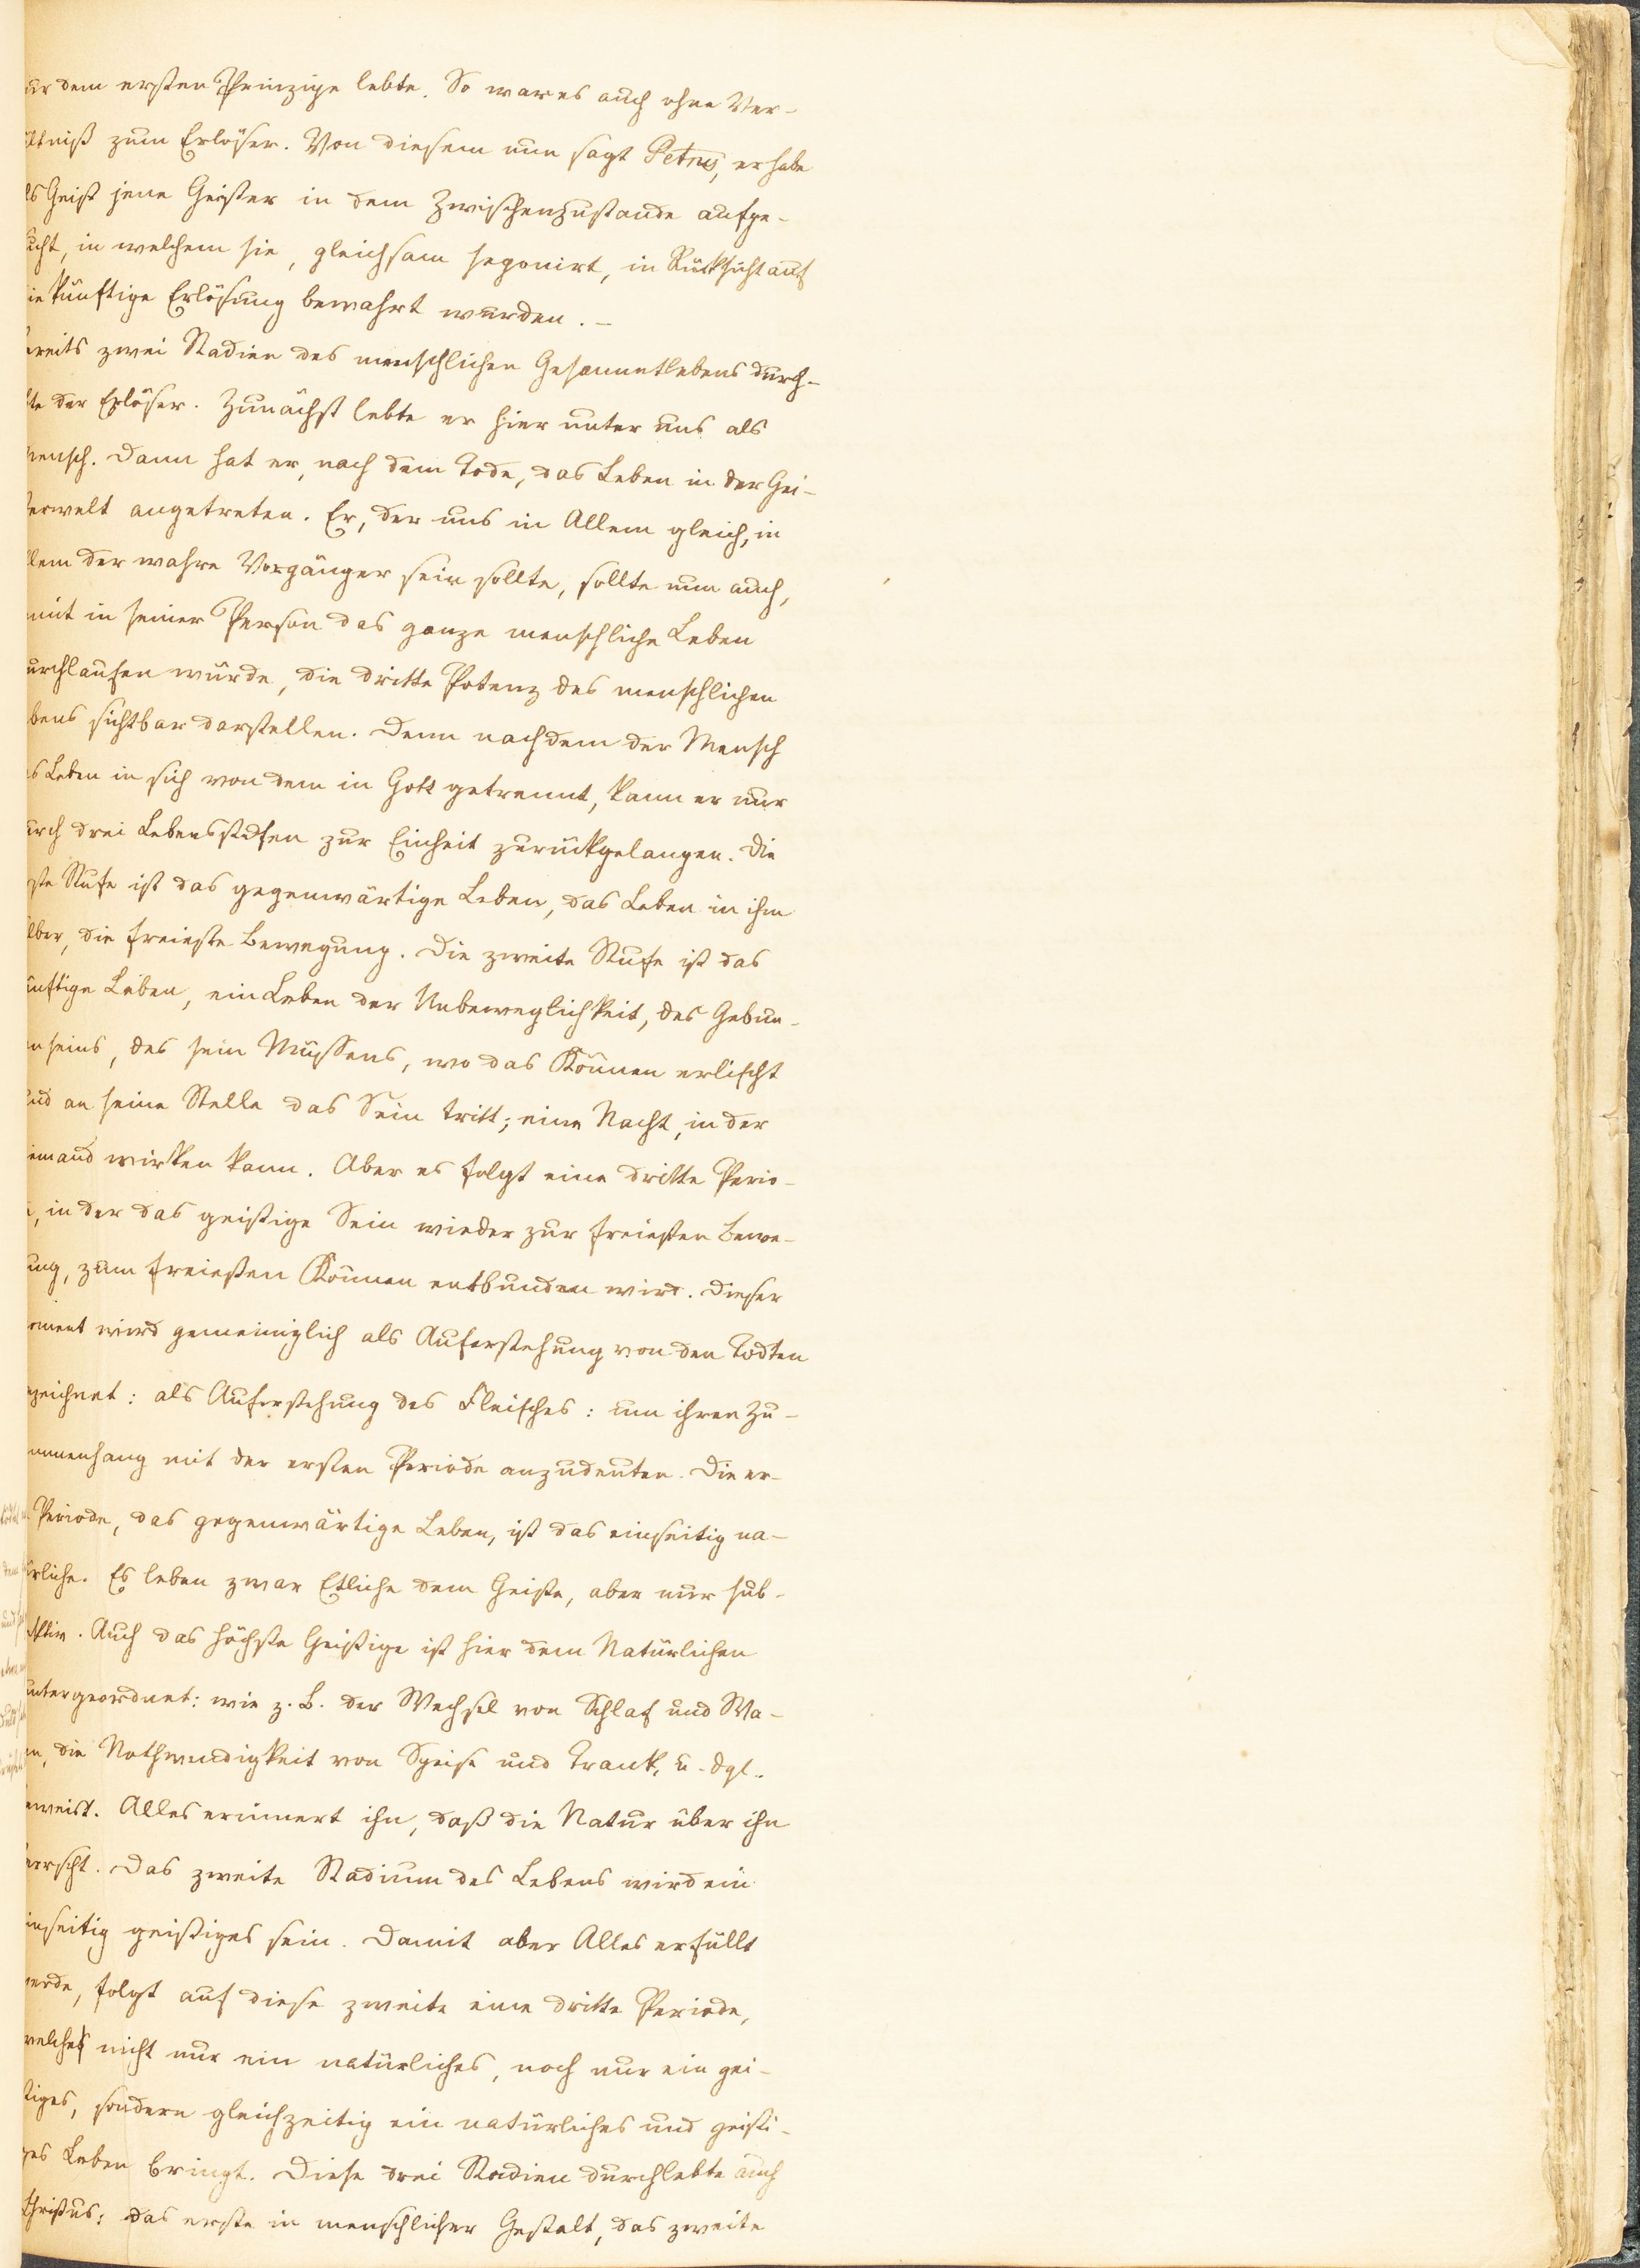 ur dem ersten Prinzipe lebte. So war es auch ohne Ver-
ltniß zum Erlöser. Von diesem nun sagt Petrus, er habe
ls Geist jene Geister in dem Zwischenzustande aufge-
ucht, in welchem sie, gleichsam seponirt, in Rücksicht auf
ie künftige Erlösung bewahrt wurden. –
ereits zwei Stadien des menschlichen Gesammtlebens durch-
te der Erlöser. Zunächst lebte er hier unter uns als
Mensch. Dann hat er, nach dem Tode, das Leben in der Gei-
terwelt angetreten. Er, der uns in Allem gleich, in
llem der wahre Vorgänger sein sollte, sollte nun auch,
mit in seiner Person das ganze menschliche Leben
urchlaufen würde, die dritte Potenz des menschlichen
bens sichtbar darstellen. Denn nachdem der Mensch
s Leben in sich von dem in Gott getrennt, kann er nur
urch drei Lebensstufen zur Einheit zurückgelangen. Die
ste Stufe ist das gegenwärtige Leben, das Leben in ihm
lber, die freieste Bewegung. Die zweite Stufe ist das
ünftige Leben, ein Leben der Unbeweglichkeit, des Gebun-
enseins, des sein Müssens, wo das Können erlischt
und an seine Stelle das Sein tritt; eine Nacht, in der
iemand wirken kann. Aber es folgt eine dritte Perio-
, in der das geistige Sein wieder zur freiesten Bewe-
ung, zum freiesten Können entbunden wird. Dieser
oment wird gemeiniglich als Auferstehung von den Todten
ezeichnet: als Auferstehung des Fleisches: um ihren Zu-
mmenhang mit der ersten Periode anzudeuten. Die er-
Periode, das gegenwärtige Leben, ist das einseitig na-
ürliche. Es leben zwar Etliche dem Geiste, aber nur sub-
ektiv. Auch das höchste Geistige ist hier dem Natürlichen
untergeordnet: wie z. B. der Wechsel von Schlaf und Wa-
en, die Nothwendigkeit von Speise und Trank, u. dgl.
eweist. Alles erinnert ihn, daß die Natur über ihn
errscht. Das zweite Stadium des Lebens wird ein
inseitig geistiges sein. Damit aber Alles erfüllt
werde, folgt auf diese zweite eine dritte Periode,
welche nicht nur ein natürliches, noch nur ein gei-
tiges, sondern gleichzeitig ein natürliches und geisti-
ges Leben bringt. Diese drei Stadien durchlebte auch
Christus: das erste in menschlicher Gestalt, das zweite